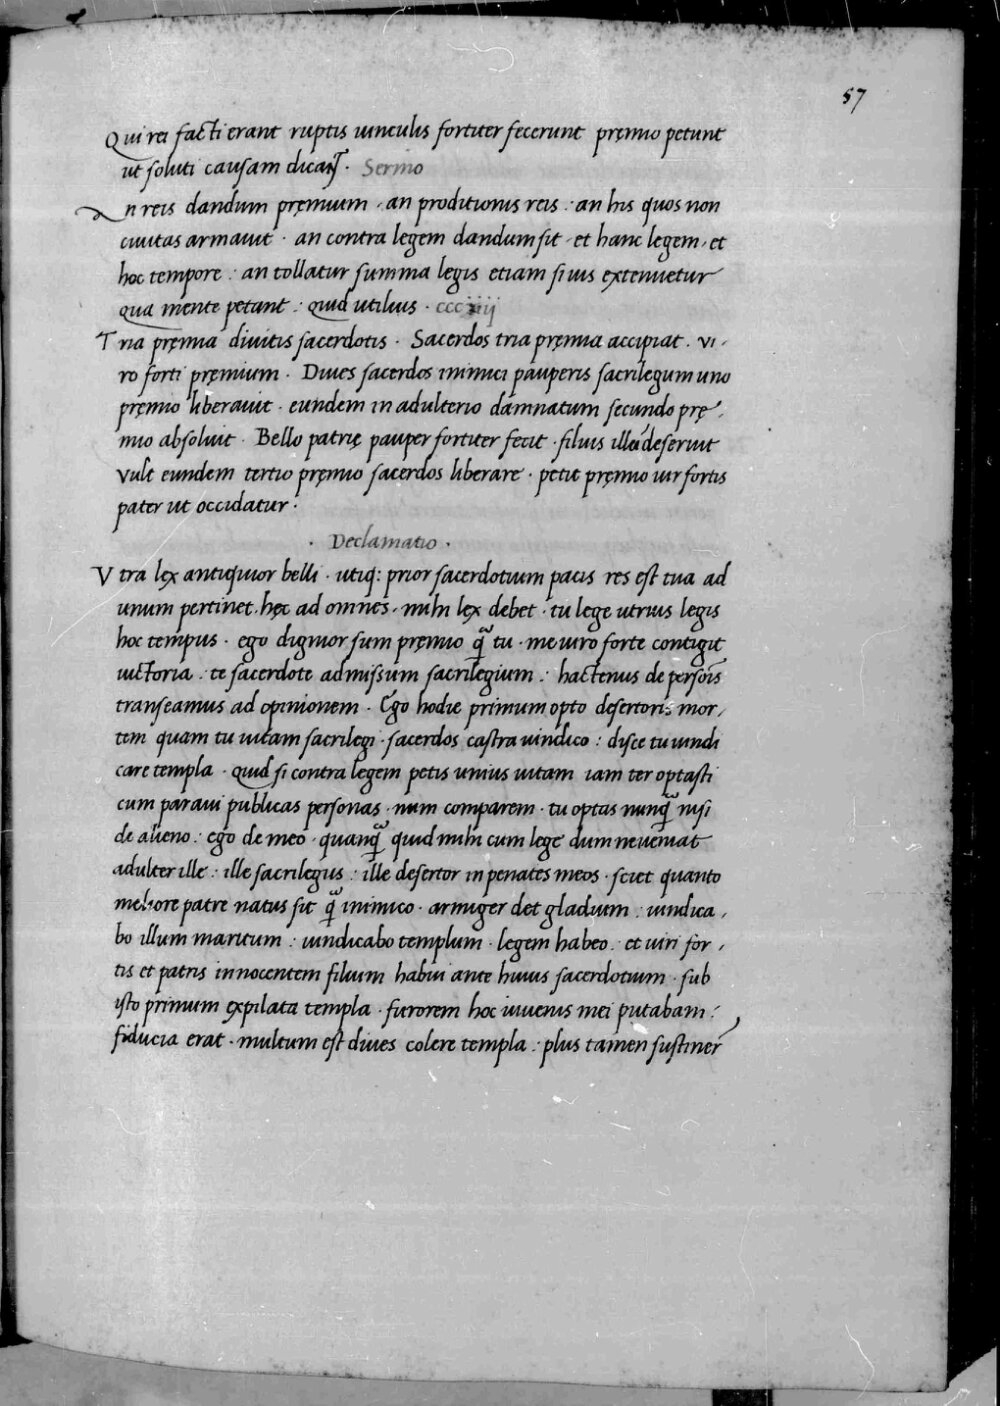 57
Qui rei facti erant ruptis uinculis fortiter fecerunt pręmio petunt
ut soluti causam dicant̃. Sermo
An reis dandum pręmium. an proditionis reis. an his quos non
ciuitas armauit. an contra legem dandum sit. et hanc legem. et
hoc tempore. an tollatur summa legis etiam si uis extenuetur
qua mente petant. quid utilius. cccxiiij
Tria pręmia diuitis sacerdotis. Sacerdos tria pręmia accipiat. vi-
ro forti pręmium. Diues sacerdos inimici pauperis sacrilegum uno
pręmio liberauit. eundem in adulterio damnatum secundo prę-
mio absoluit. Bello patrię pauper fortiter fecit. filius illa deseruit
vult eundem tertio pręmio sacerdos liberare. petit pręmio uir fortis
pater ut occidatur.
. Declamatio .
Vtra lex antiquior belli. utiq: prior sacerdotium pacis res est tua ad
unum pertinet. hęc ad omnes. mihi lex debet. tu lege utrius legis
hoc tempus. ego dignior sum pręmio q̃ tu. me uiro forte contigit
uictoria. te sacerdote admissum sacrilegium. hactenus de persõis
transeamus ad opinionem. Ego hodie primum opto desertoris mor-
tem quam tu uitam sacrilegi. sacerdos castra uindico: disce tu uindi
care templa. quid si contra legem petis unius uitam iam ter optasti
cum paraui publicas personas. num comparem. tu optas nunq̃ nisi
de alieno. ego de meo. quanq̃ quid mihi cum lege dum ne ueniat
adulter ille. ille sacrilegus. ille desertor in penates meos. sciet quanto
meliore patre natus sit q̃ inimico. armiger det gladium. uindica-
bo illum maritum. uindicabo templum. legem habeo. et uiri for-
tis et patris innocentem filium habui ante huius sacerdotium. sub
isto primum expilata templa. furorem hoc iuuenis mei putabam.
fiducia erat. multum est diues colere templa. plus tamen sustiner̃